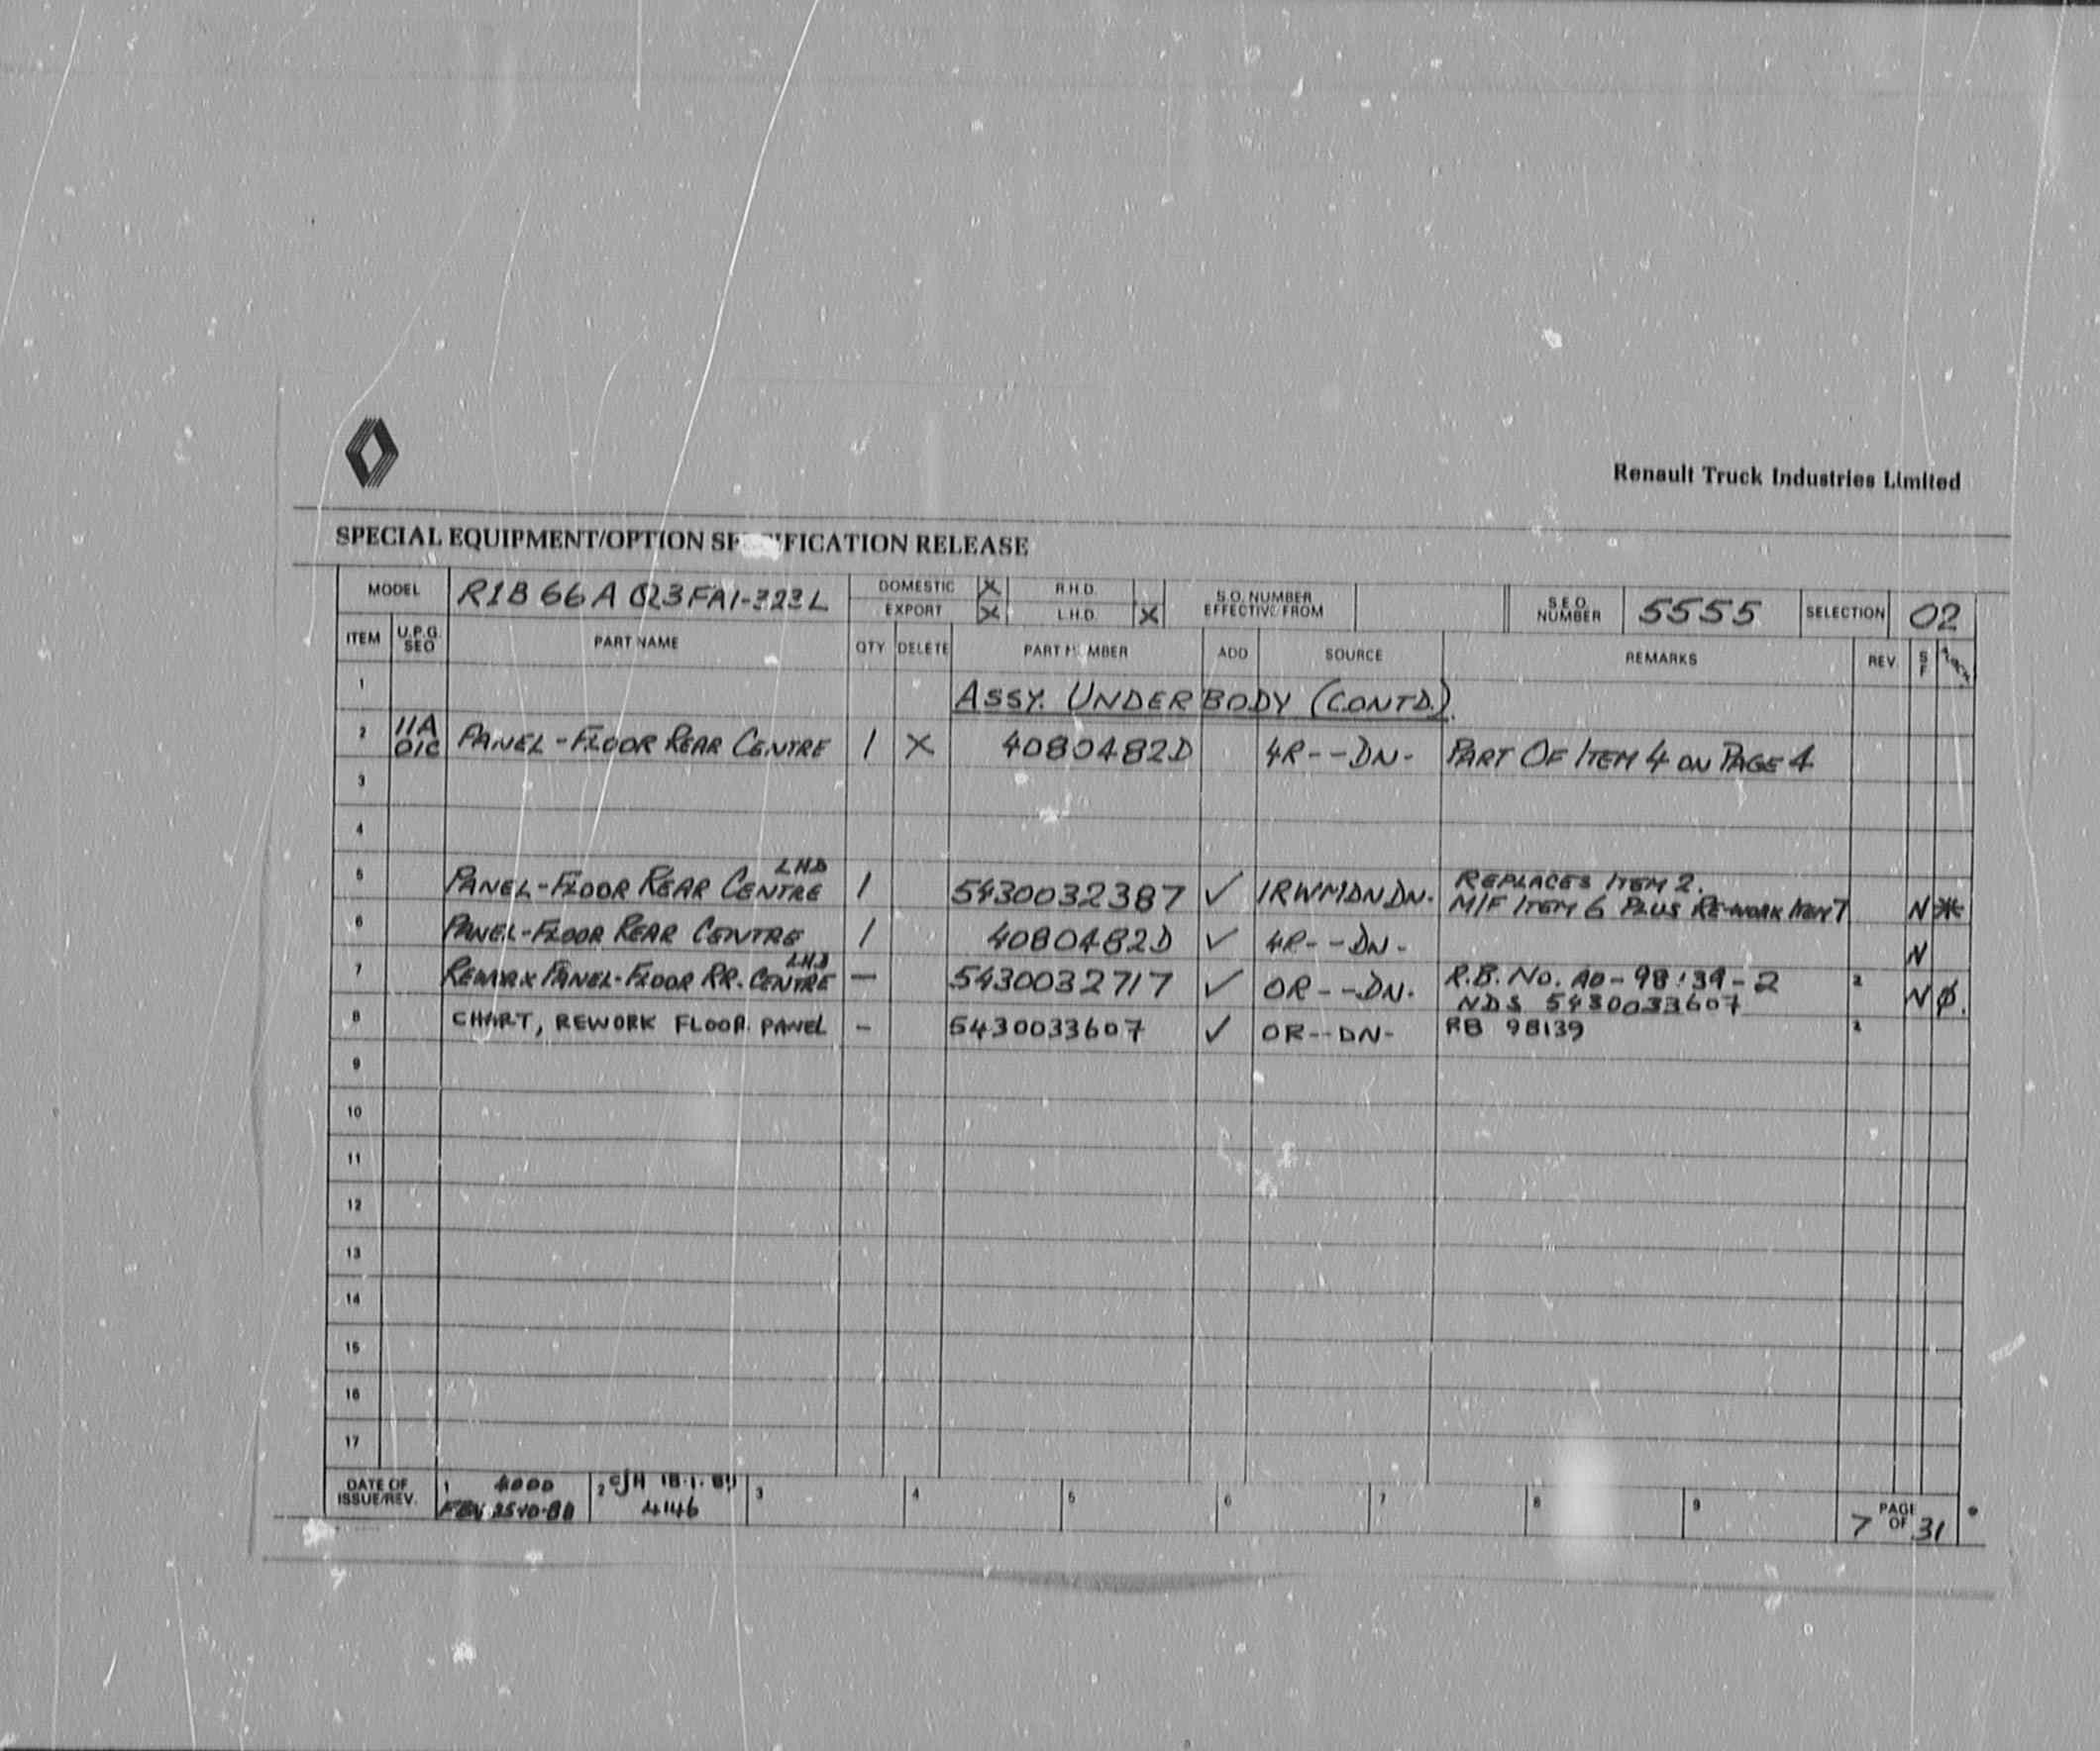 Renault Truck Industries Limited
SPECIAL EQUIPMENT/OPTION SP IFICATION RELEASE
MODEL R1B66A 023FA1-323L DOMESTIC X R.H.D. S.O. NUMBER EFFECTIVE FROM S.E.O. NUMBER 5555 SELECTION 02
EXPORT X L.H.D. X
ITEM U.P.G. SEO PART NAME QTY DELETE PART NUMBER ADD SOURCE REMARKS REV. S F
1 ASSY. UNDERBODY (CONTD.)
2 11A 01C PANEL-FLOOR REAR CENTRE 1 X 4080482D 4R--DN- PART OF ITEM 4 ON PAGE 4
3
4
5 PANEL-FLOOR REAR CENTRE LHD 1 5430032387 ✓ 1RWMDNDN. REPLACES ITEM 2.
M/F ITEM 6 PLUS RE-WORK ITEM 7 N *
6 PANEL-FLOOR REAR CENTRE 1 4080482D ✓ 4R--DN- N
7 REWORK PANEL-FLOOR RR. CENTRE LHD — 5430032717 ✓ OR--DN. R.B. NO. AO-98139-2 2
NDS 5430033607 N Ø.
8 CHART, REWORK FLOOR PANEL - 5430033607 ✓ OR--DN- RB 98139 2
9
10
11
12
13
14
15
16
17
DATE OF ISSUE/REV. 1 4000 2 CJH 18.1. 3 4 5 6 7 8 9 PAGE 7 OF 31
4146